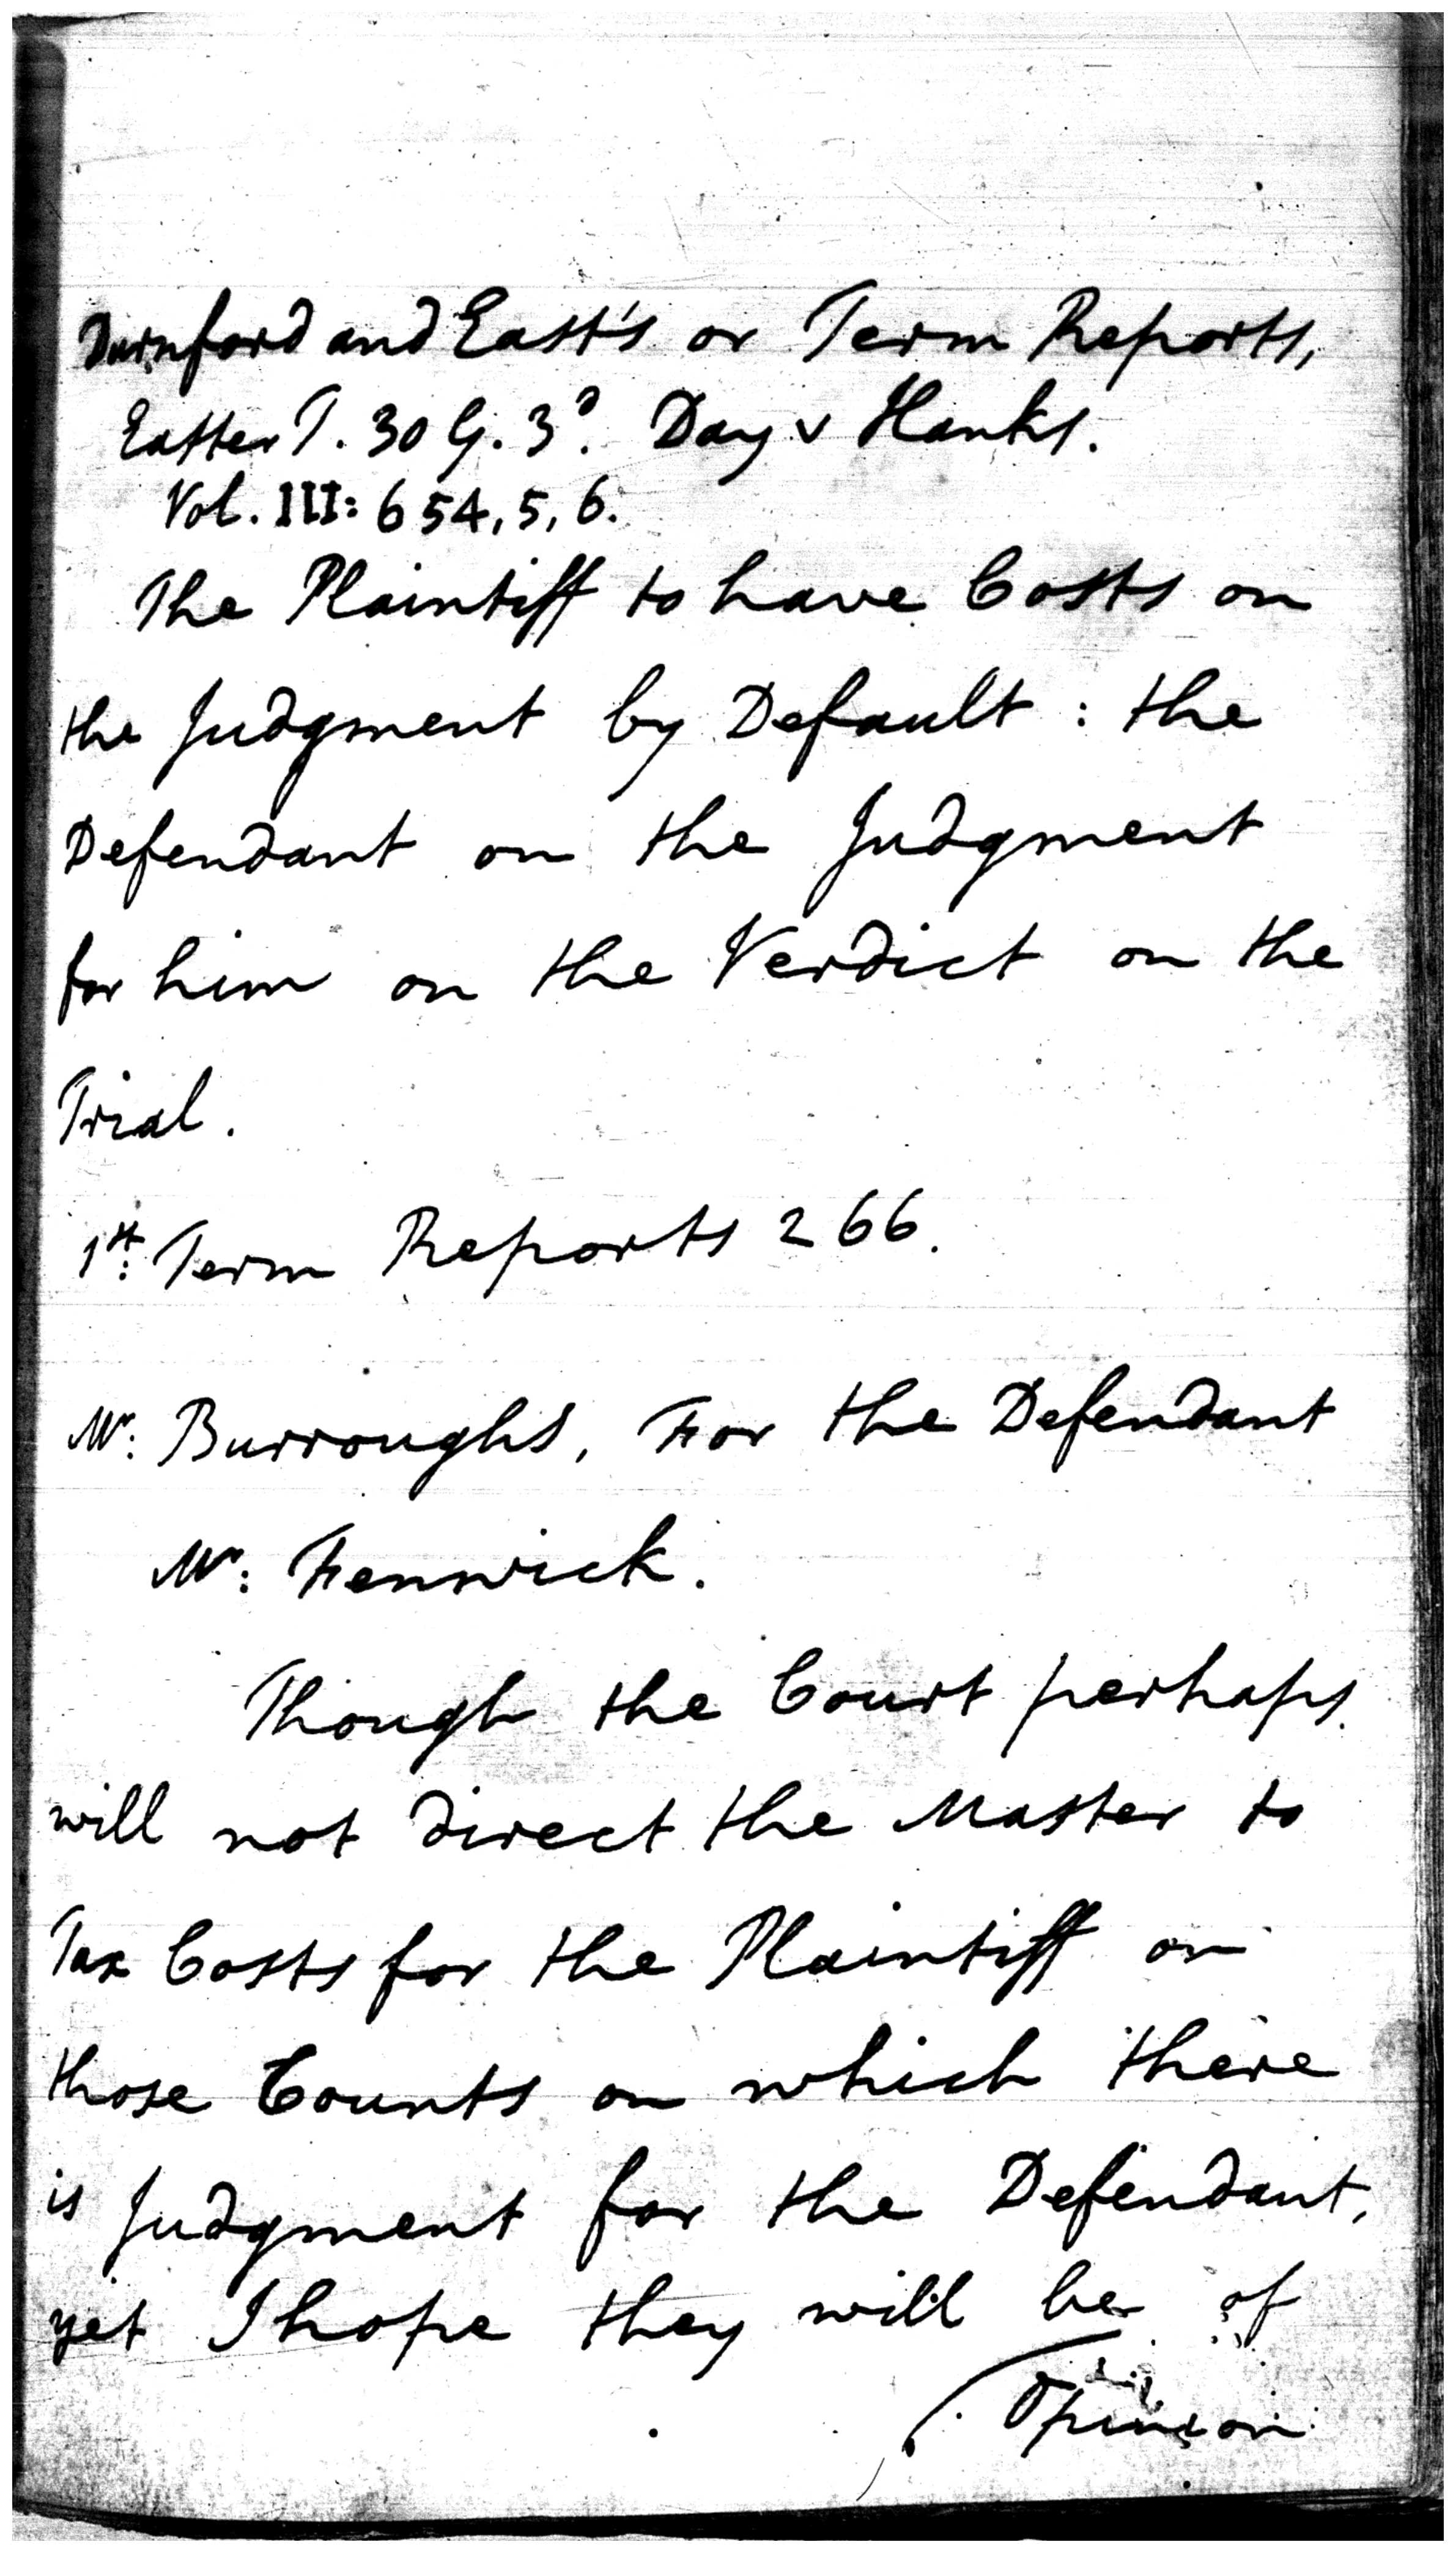 Durnford and East's or Term Reports,
Easter T. 30 G. 3d. Day v Hanks.
Vol. III: 654, 5, 6.
The Plaintiff to have Costs on
the Judgment by Default : the
Defendant on the Judgment
for him on the Verdict on the
Trial.
1st: Term Reports 266.
Mr: Burroughs, For the Defendant
Mr: Fenwick.
Though the Court perhaps
will not direct the Master to
Tax Costs for the Plaintiff on
those Counts on which there
is Judgment for the Defendant,
yet I hope they will be of
Opinion